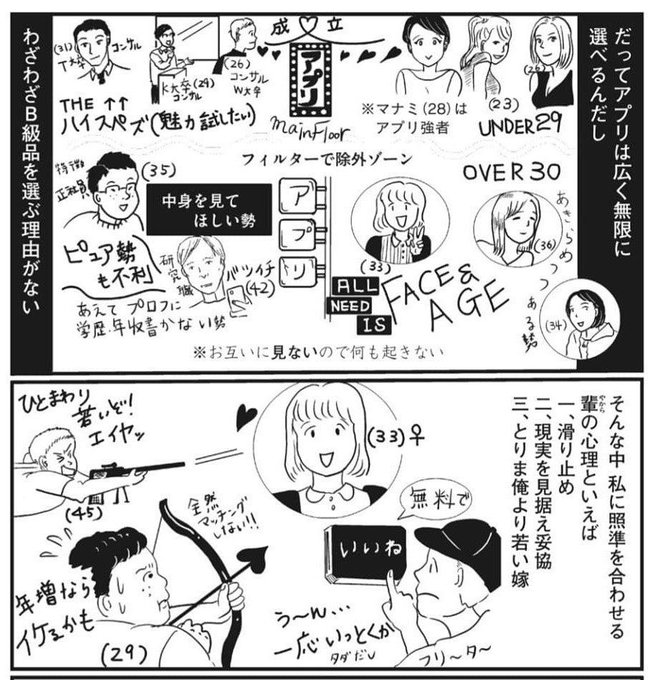 だってアプリは広く無限に
選べるんだし
わざわざB級品を選ぶ理由がない
成♡立
アプリ
mainFloor
(31)
コンサル
T大卒
K大卒(29)
コンサル
(26)
コンサル
W大卒
THE ↑↑
ハイスペズ(魅力試したい)
※マナミ(28)は
アプリ強者
(23)
UNDER29
フィルターで除外ゾーン
OVER30
(35)
特徴
正社員
中身を見て
ほしい勢
アプリ
ピュア勢
も不利
研究職
バツイチ
(42)
あえてプロフに
学歴・年収書かない勢
(33)
ALL
NEED
IS
FACE&
AGE
(36)
あきらめつつある勢
(34)
※お互いに見ないので何も起きない
そんな中 私に照準を合わせる
輩の心理といえば
やから
一、滑り止め
二、現実を見据え妥協
三、とりま俺より若い嫁
ひとまわり
若いぞ!
エイヤッ
(45)
(33)♀
全然
マッチング
しない!!
年増なら
イケるかも
(29)
無料で
いいね
う〜ん...
一応いっとくか
タダだし
フリ〜タ〜